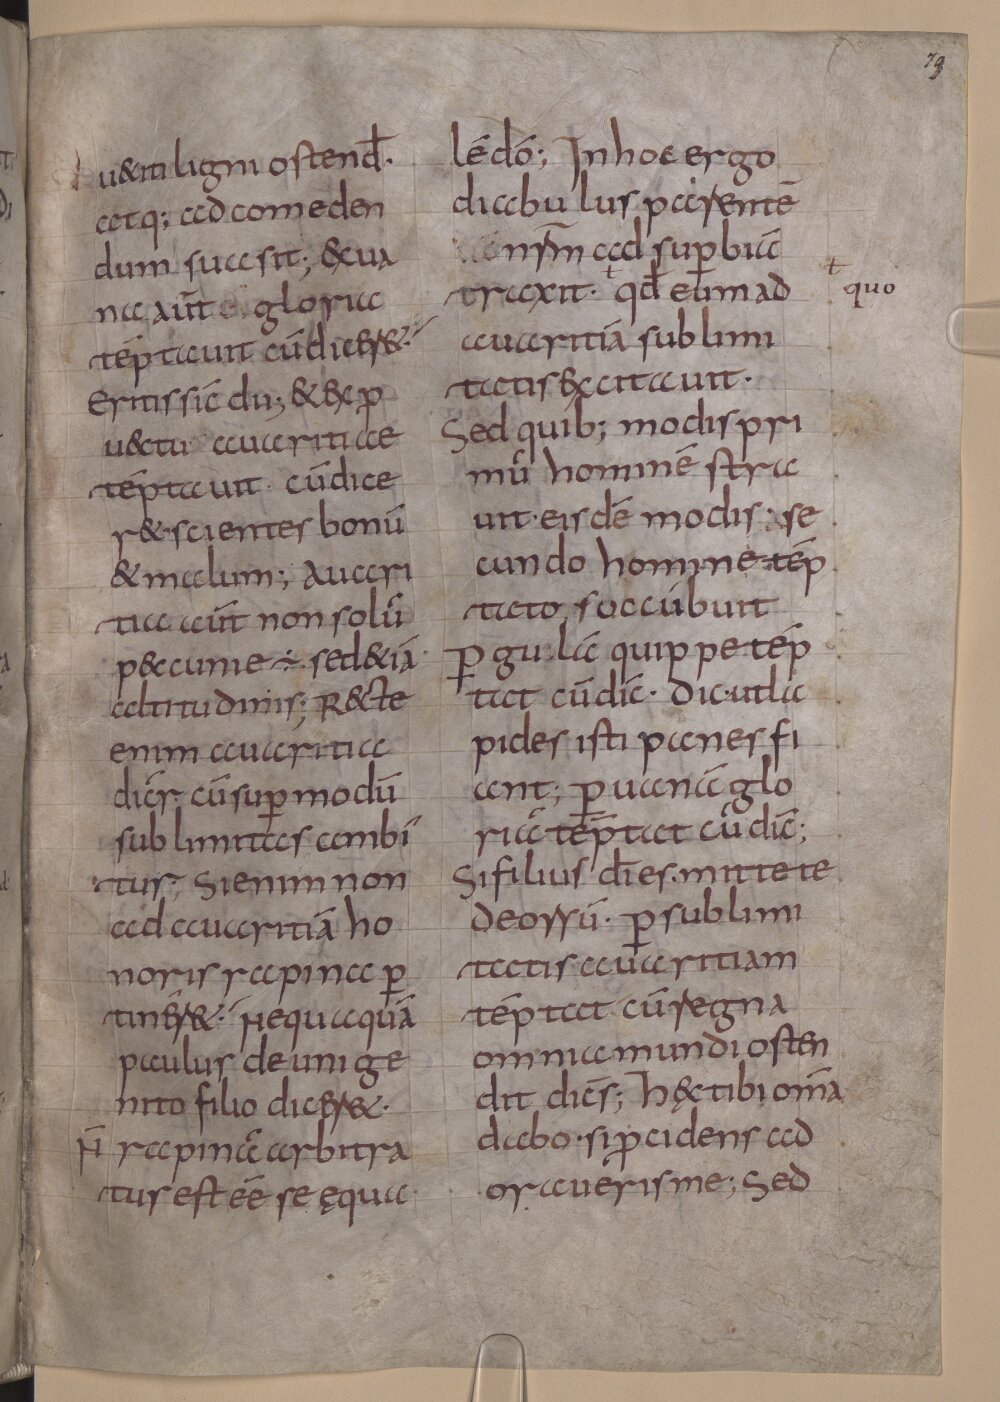 79
u&iti ligni ostend̄·
atq; ad comeden
dum suasit; &ua
na aūt gloria
tēptauit cū dicer&·
Eritis sic dii; & exp
uectu auaritiae
tēptauit· cū dice
r&·scientes bonū
& malum; Auari
tia aūt non solū
pecuniae ÷ sed&iā
altitudinis; Recte
enim auaritia
dicr̄ cū supmodū
sublimitas ambi
tur; Si enim non
ad auaritiā ho
noris rapina p
tiner&· Nequaquā
paulus de unige
nito filio dicer&·
N̄ rapinā arbitra
tus est eē se ęqua
lē dō; In hoc ergo
diabulus parentē
nr̄m ad supbiā
traxit· qđ eum ad
quo
auaritiā sublimi
tatis excitauit·
Sed quib; modis pri
mū hominē stra
uit·eisdē modis se
cundo homine tēp
tato succubuit
P gulā quippe tēp
tat cū dic̄· Dic·utla
pides isti panes fi
ant; p uanā glo
riā tēptat cū dic̄;
Si filius dī es·mitte te
deorsū· p sublimi
tatis auaritiam
tēptat cū regna
omnia mundi osten
dit dicēs; Hęc tibi om̄a
dabo·si pcidens ad
oraueris me; Sed